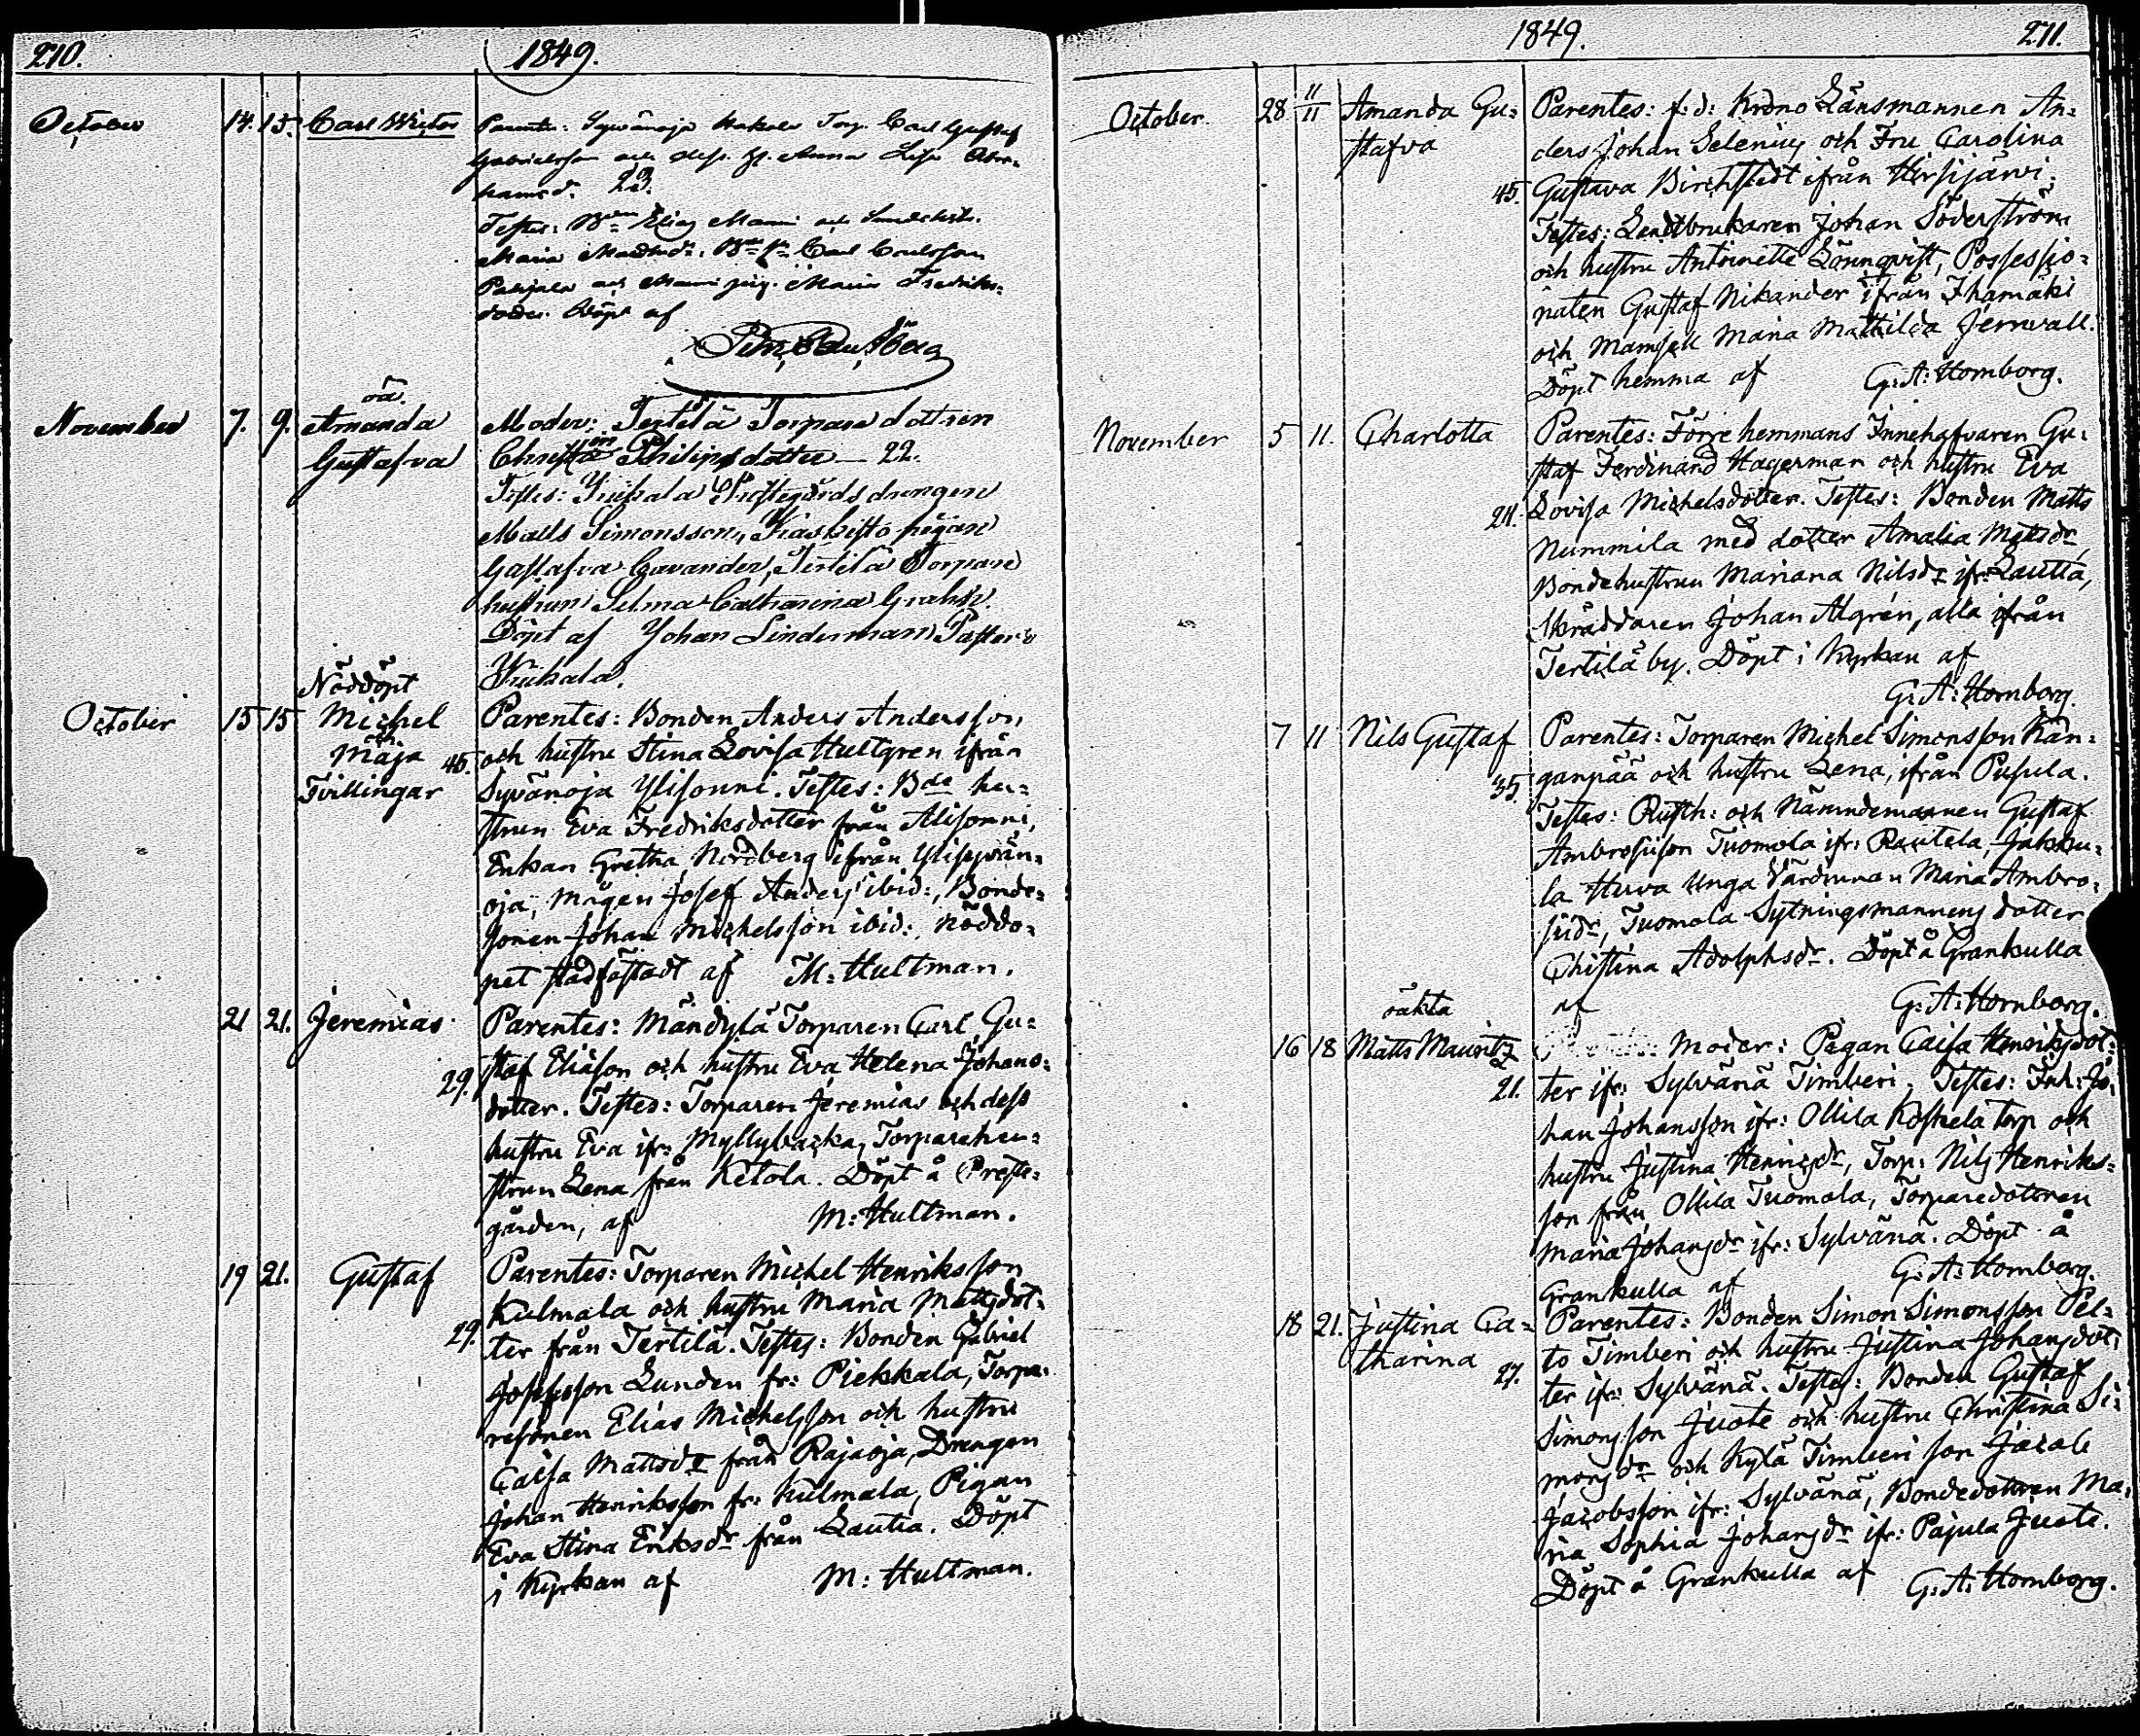 210. 1849.
October 14. 15. Carl Victor Parentes: Sywänoja Hakala Torp. Carl Gustaf
Gabrielsson och dess h. Anna Lisa Abra-
hamsd. 23.
Testes: Bn Elias Manni och
Maria Bn Carl Carlsson
Maria Fredriks-
dotter. Döpt af
oä.
November 7. 9. Amanda Moder: Tertilä Torpare dottren
Gustafva Christina Philipsdotter — 22.
Testes: Yrjkala Prestegårds drängen
Matts Simonsson, Kaskisto pigan
Gustafva Gavander, Tertilä Torpare
hustrun Selma Catharina Grahn.
Döpt af Johan Linderman Pastor i
Nöddöpt
October 15 15 Michel Parentes: Bonden Anders Andersson
och
Maja 45. och hustru Stina Lovisa Hultgren ifrån
Tvillingar Syvänoja Ylisonni. Testes: Bde hu-
strun Eva Fredriksdotter från Alisonni,
Enkan Gretha Nordberg ifrån Ylisyvän-
oja, mågen Josef Anders ibid:, Bonde-
sonen Johan Michelsson ibid:, nöddo-
pet stadfästadt af M: Hultman.
21 21. Jeremias Parentes: Mändylä Torparen Carl Gu-
29. staf Eliasson och hustru Eva Helena Johans-
dotter. Testes: Torparen Jeremias och dess
hustru Eva ifr: Myllybacka, Torparehu-
strun Lena från Ketola. Döpt å Preste-
gården, af M: Hultman.
19 21. Gustaf Parentes: Torparen Michel Henriksson
Kulmala och hustru Maria Mattsdot-
29. ter från Tertilä. Testes: Bonden Gabriel
Josefsson Lunden fr: Piekkala, Torpa-
resonen Elias Michelsson och hustru
Caisa Mattsdr från Rajaoja, Drengen
Johan Henriksson fr: Kulmala, Pigan
Eva Stina Eriksdr från Lautia. Döpt
i Kyrkan af M: Hultman.
1849. 211.
October. 28 11/11 Amanda Gu- Parentes: f.d: Krono Länsmannen An-
stafva ders Johan Selenius och Fru Carolina
45. Gustava Birchstedt ifrån Hirsijärvi.
Testes: Landtbrukaren Johan Söderström
och hustru Antoinette Lönnqvist, Possessio-
naten Gustaf Nikander ifrån Ihamäki
och Mamsell Maria Mathilda Jernvall.
Döpt hemma af G: A: Hornborg.
November 5 11. Charlotta Parentes: Förre hemmans Innehafvaren Gu-
staf Ferdinand Hagerman och hustru Eva
24. Lovisa Michelsdotter. Testes: Bonden Matts
Nummila med dotter Amalia Mattsdr
Bondehustrun Mariana Nilsdr ifr: Lautia,
Skräddaren Johan Algrén, alla ifrån
Tertilä by. Döpt i Kyrkan af
G: A: Hornborg.
7 11 Nils Gustaf Parentes: Torparen Michel Simonsson Kan-
35. ganpää och hustru Lena, ifrån Pusula.
Testes: Rusth: och Nämndemannen Gustaf
Ambrosiison Tuomola ifr: Rautela, Jakku-
la Huva Unga Värdinnan Maria Ambro-
siidr, Tuomola Sytningsmannens dotter
Christina Adolphsdr. Döpt å Grankulla
af G: A: Hornborg.
oäkta
16 18 Matts Mauritz Moder: Pigan Caisa Henriksdot-
21. ter ifr: Sylvänä Timberi. Testes: Inh: Jo-
han Johansson ifr: Ollila Koskela torp och
hustru Justina Henricsdr, Torp: Nils Henriks-
son från Ollila Tuomala, Torparedottren
Maria Johansdr ifr: Sylvänä. Döpt å
Grankulla af G: A: Hornborg.
18 21. Justina Ca- Parentes: Bonden Simon Simonsson Pel-
tharina to Timberi och hustru Justina Johansdot-
27. ter ifr: Sylvänä. Testes: Bonden Gustaf
Simonsson Juote och hustru Christina Si-
monsdr och Kylä Timberi son Jacob
Jacobsson ifr: Sylvänä, Bondedottren Ma-
ria Sophia Johansdr ifr: Pajula Juote.
Döpt å Grankulla af G: A: Hornborg.